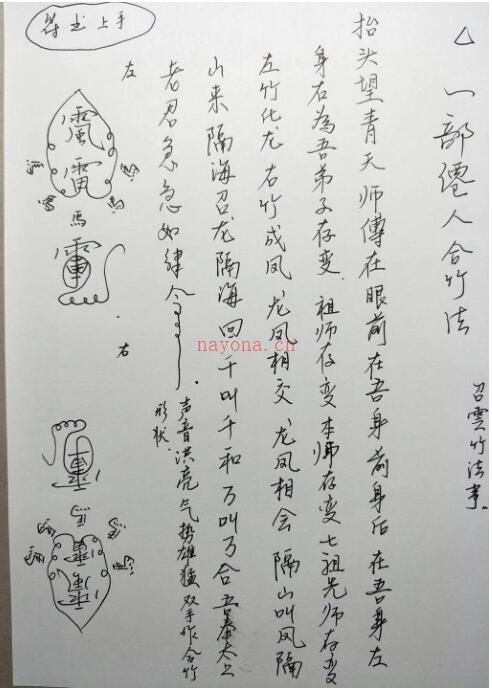 △ 一部僊人合竹法
召雲竹法事.
抬头望青天师傅在眼前在吾身前身后在吾身左
身右為吾弟子存变.祖师存变本师存变七祖先师存变
左竹化龙右竹成凤,龙凤相交,龙凤相会,隔山叫凤隔
山来隔海召龙隔海回千叫千和万叫万合吾奉太上
老君急急如律令
声音洪亮气势雄猛双手作合竹
形状
左
右
符 上手
nayona.cn